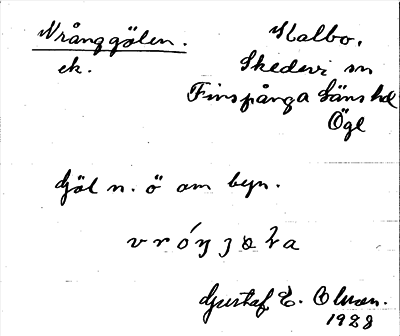 Vrånggölen.
ek.
Kalbo.
Skedevi sn
Finspånga läns hd
Ögl
Göl n. ö om byn.
Gustaf E. Olsson.
1928